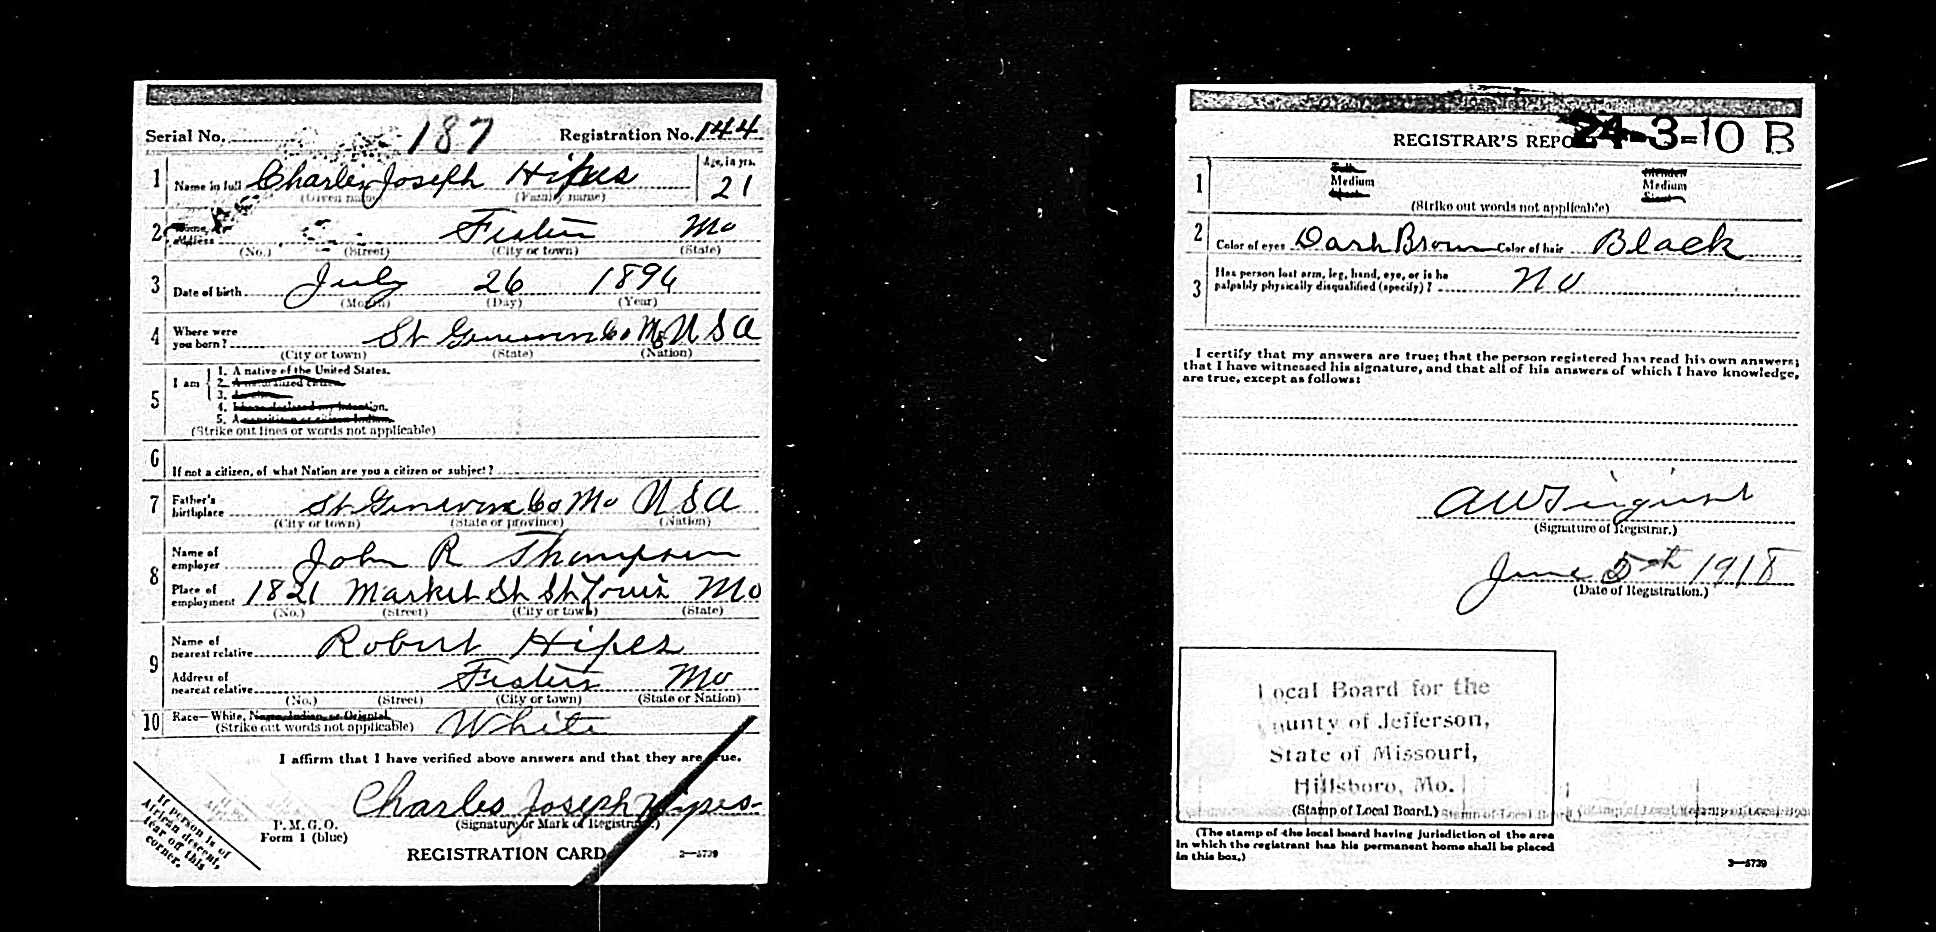 Serial No. 187 Registration No. 144
1 Name in full Charles Joseph Hipes Age, in yrs. 21
(Given name) (Family name)
2 Home address Festus Mo
(No.) (Street) (City or town) (State)
3 Date of birth July 26 1896
(Month) (Day) (Year)
4 Where were you born? St Genevieve Co Mo U S A
(City or town) (State) (Nation)
5 I am 1. A native of the United States.
2. A naturalized citizen.
3. 
4. I have declared my intention.
5. A noncitizen or citizen Indian.
(Strike out lines or words not applicable)
6 If not a citizen, of what Nation are you a citizen or subject?
7 Father's birthplace St Genevieve Co Mo U S A
(City or town) (State or province) (Nation)
8 Name of employer John R Thompson
Place of employment 1821 Market St St Louis Mo
(No.) (Street) (City or town) (State)
9 Name of nearest relative Robert Hipes
Address of nearest relative Festus Mo
(No.) (Street) (City or town) (State or Nation)
10 Race—White, Negro, Indian, or Oriental White
(Strike out words not applicable)
I affirm that I have verified above answers and that they are true.
Charles Joseph Hipes
(Signature or Mark of Registrant.)
P. M. G. O.
Form 1 (blue)
REGISTRATION CARD
3—5739
If person is of
African descent,
tear off this
corner.
REGISTRAR'S REPORT 24-3-10 B
1 Tall Medium Short Slender Medium Stout
(Strike out words not applicable)
2 Color of eyes Dark Brown Color of hair Black
3 Has person lost arm, leg, hand, eye, or is he
palpably physically disqualified (specify)? No
I certify that my answers are true; that the person registered has read his own answers;
that I have witnessed his signature, and that all of his answers of which I have knowledge,
are true, except as follows:
(Signature of Registrar.)
June 5th 1918
(Date of Registration.)
Local Board for the
County of Jefferson,
State of Missouri,
Hillsboro, Mo.
(Stamp of Local Board.)
(The stamp of the local board having jurisdiction of the area
in which the registrant has his permanent home shall be placed
in this box.)
3—5739